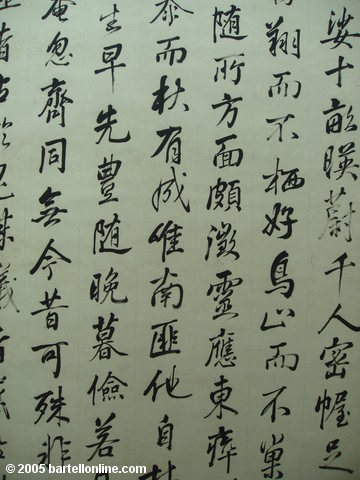 娑十畝暎蔚千人密幄足
翔而不栖好鳥止而不巢
随所方面頗徵靈應東瘁
泰而秋有成唯南匪他自
生早先豐随晚暮儉若
奄忽齊同無今昔可殊非
© 2005 bartellonline.com